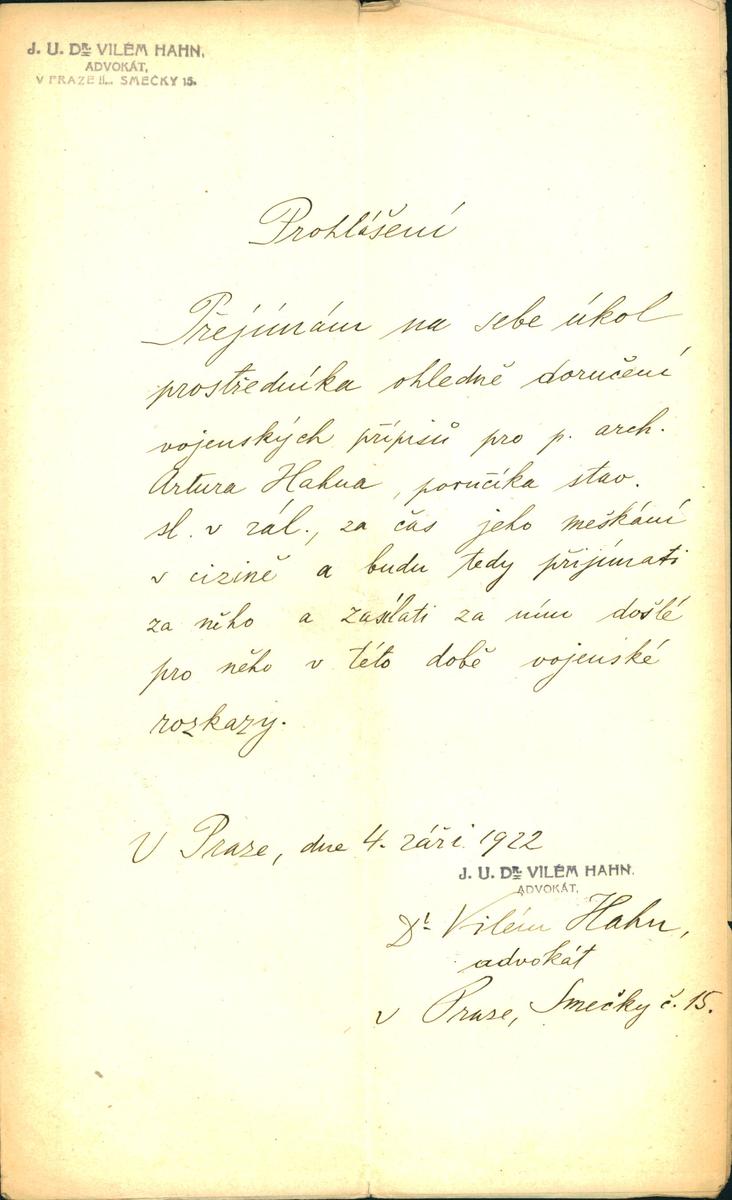 J. U. Dr. VILÉM HAHN,
ADVOKÁT,
V PRAZE II., SMEČKY 15.
Prohlášení
Přejímám na sebe úkol
prostředníka ohledně doručení
vojenských přípisů pro p. arch.
Artura Hahna, poručíka stav.
sl. v zál., za čas jeho meškání
v cizině a budu tedy přijímati
za něho a zasílati za ním došlé
pro něho v této době vojenské
rozkazy.
V Praze, dne 4. září 1922
J. U. Dr. VILÉM HAHN,
ADVOKÁT,
Dr. Vilém Hahn,
advokát
v Praze, Smečky č. 15.